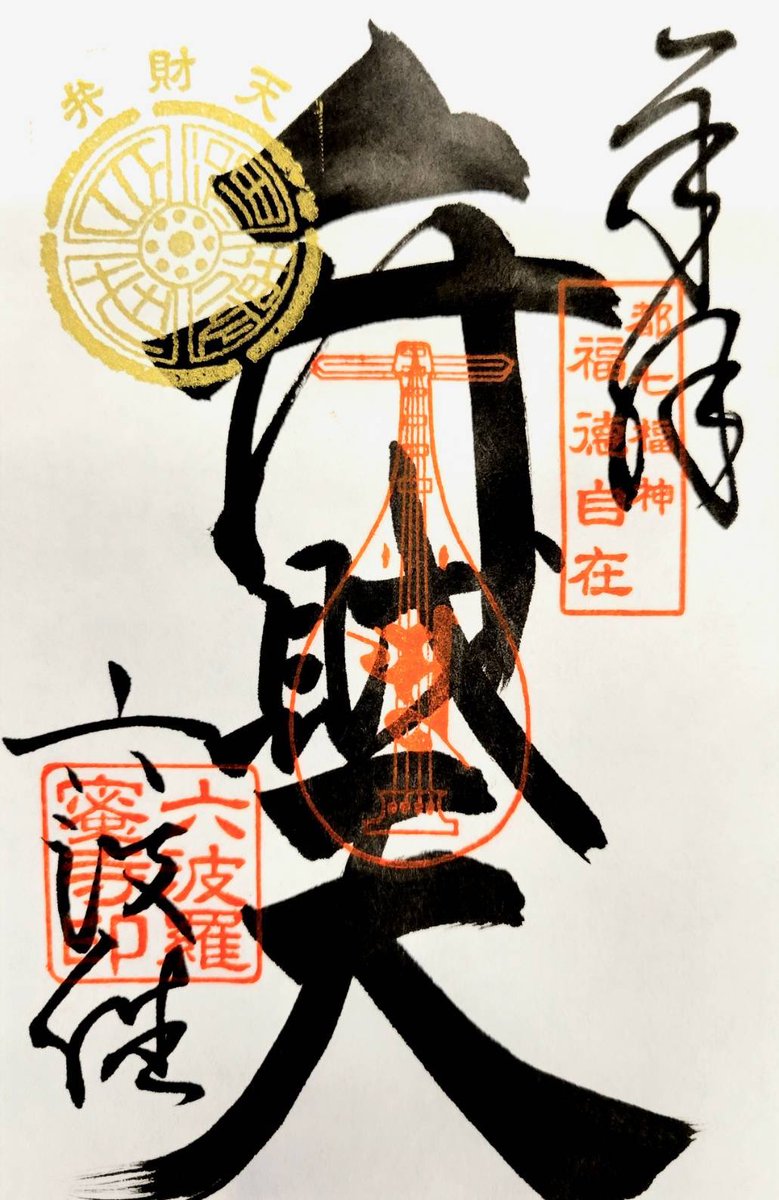 奉拝
都七福神
福徳自在
弁財天
弁財天
六波
六波羅
蜜寺印